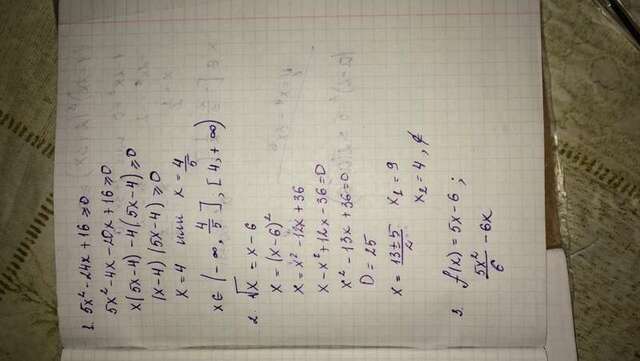 1. 5x² - 24x + 16 ⩾ 0
5x² - 4x - 20x + 16 ⩾ 0
x(5x-4) - 4(5x-4) ⩾ 0
(x-4) (5x-4) ⩾ 0
x = 4 или x = 4/5
x ∈ (-∞, 4/5], [4, +∞)
2. √x = x - 6
x = (x-6)²
x = x² - 12x + 36
x - x² + 12x - 36 = 0
x² - 13x + 36 = 0
D = 25
x = (13 ± 5)/2 x₁ = 9
x₂ = 4, ∉
3. f(x) = 5x - 6 ;
5x²/6 - 6x